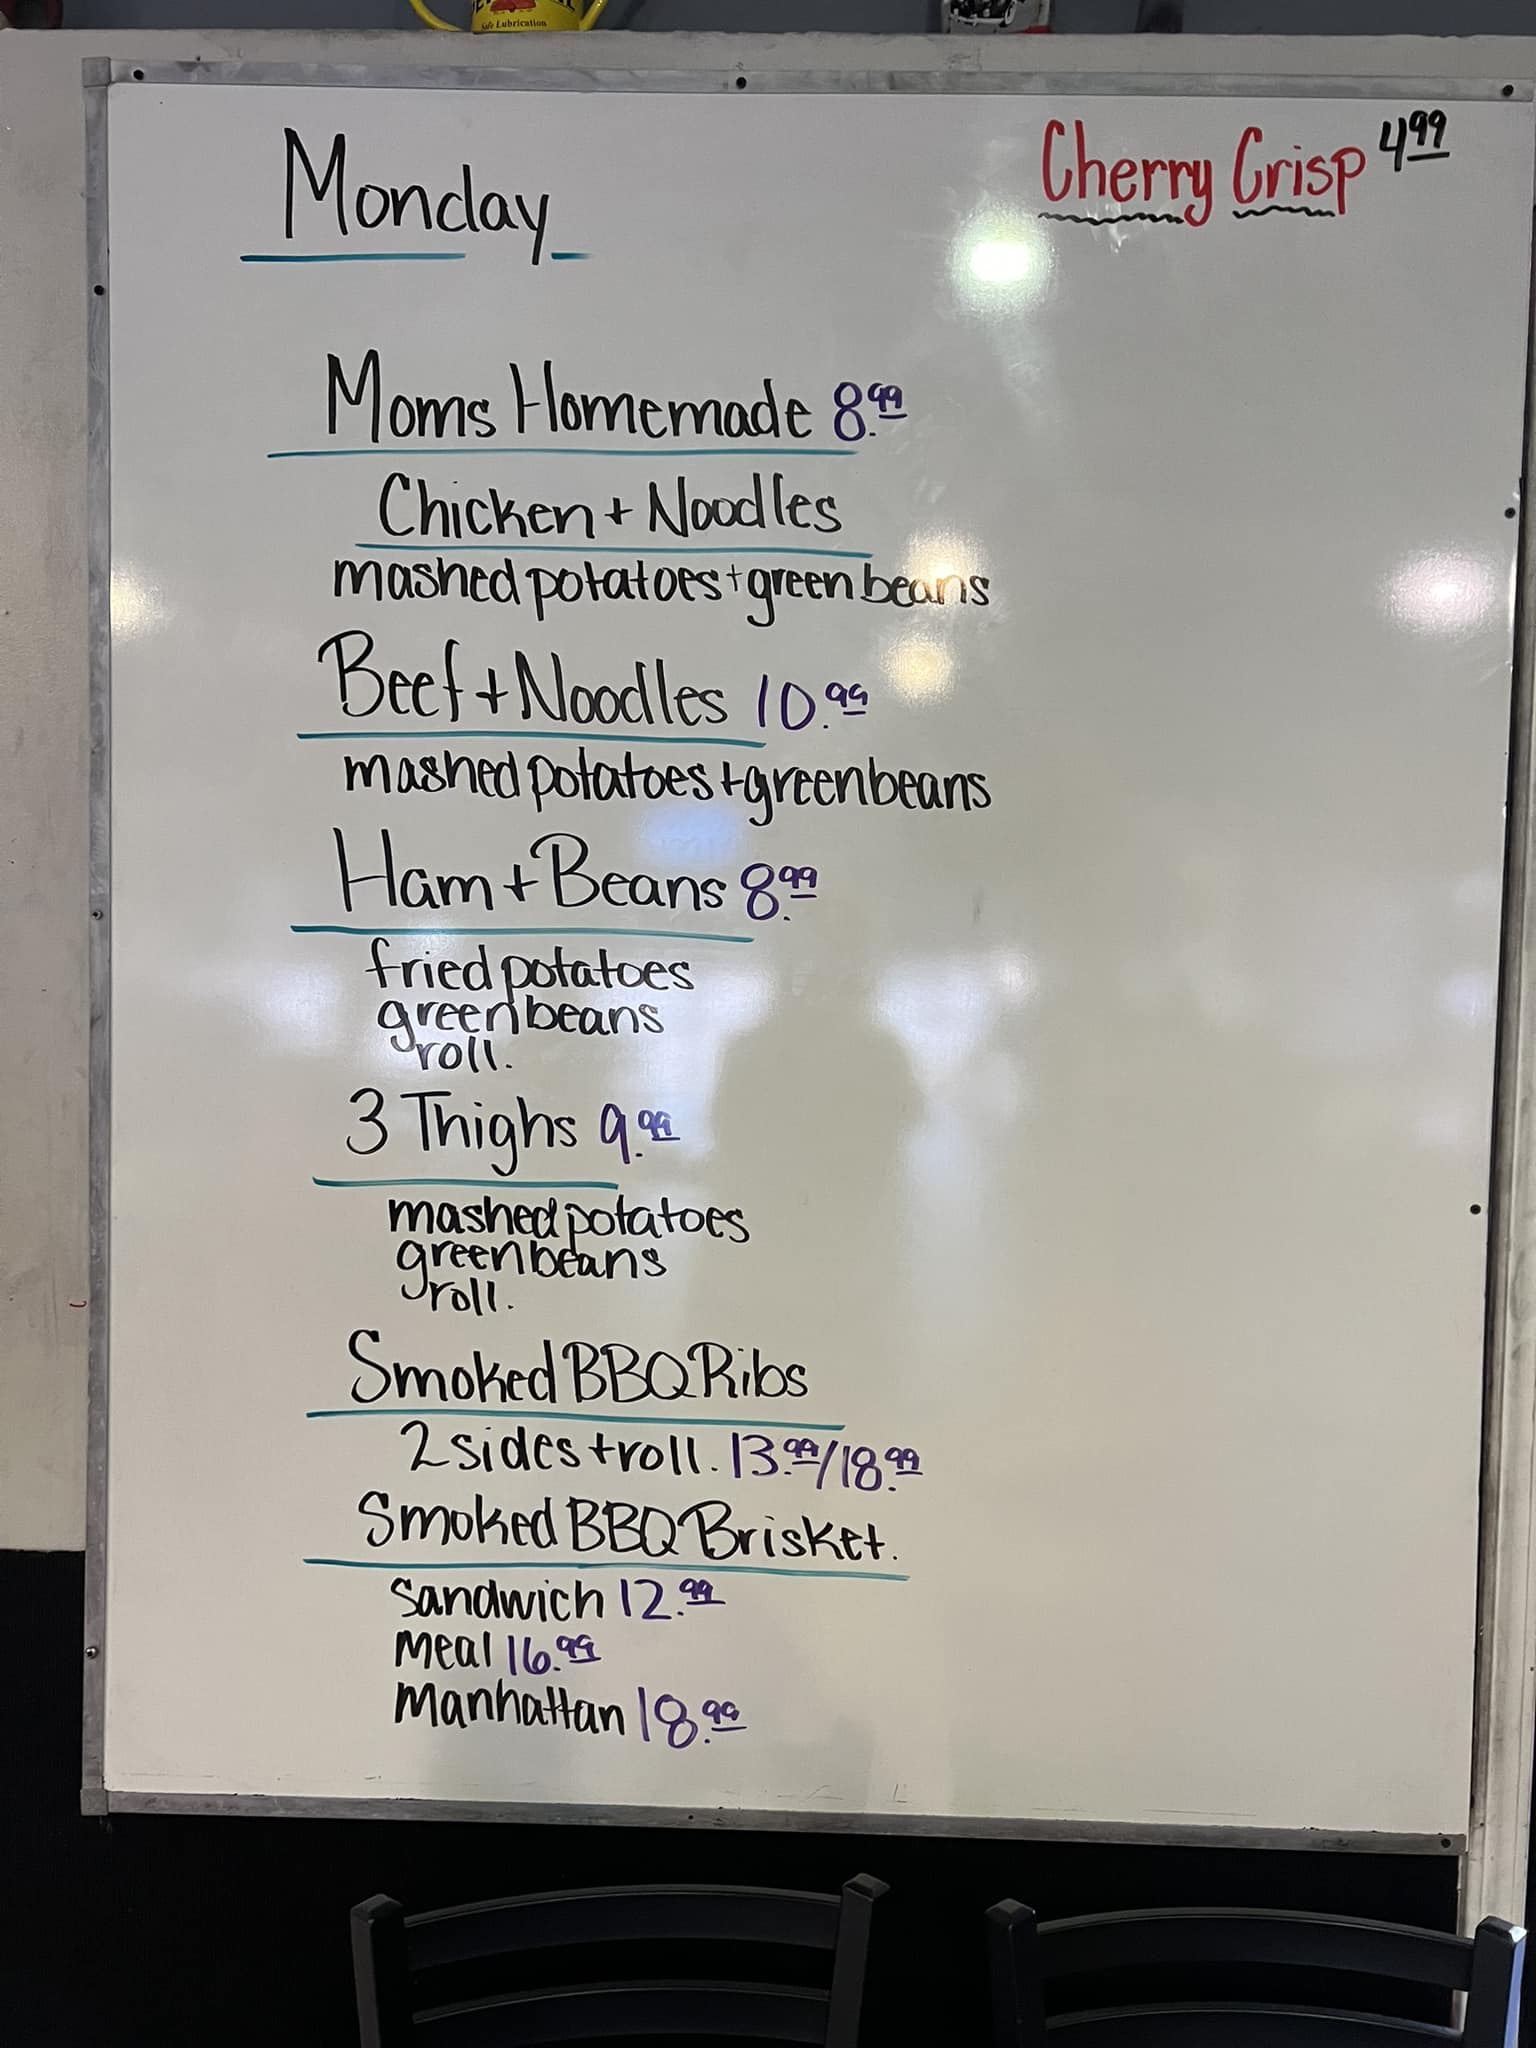 Safe Lubrication
Monday
Cherry Crisp 4 99
Moms Homemade 8.99
Chicken + Noodles
mashed potatoes + green beans
Beef + Noodles 10.99
mashed potatoes + green beans
Ham + Beans 8.99
fried potatoes
green beans
roll.
3 Thighs 9.99
mashed potatoes
green beans
roll.
Smoked BBQ Ribs
2 sides + roll. 13.99/18.99
Smoked BBQ Brisket.
sandwich 12.99
meal 16.99
manhattan 18.99